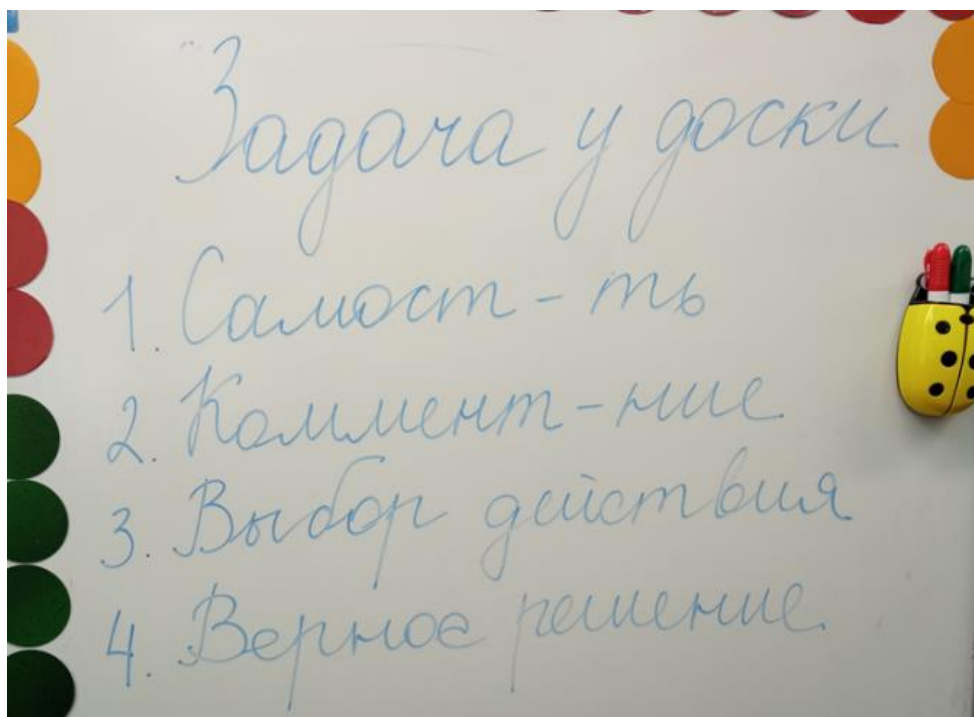 Задача у доски
1. Самост-ть
2. Коммент-ние
3. Выбор действия
4. Верное решение